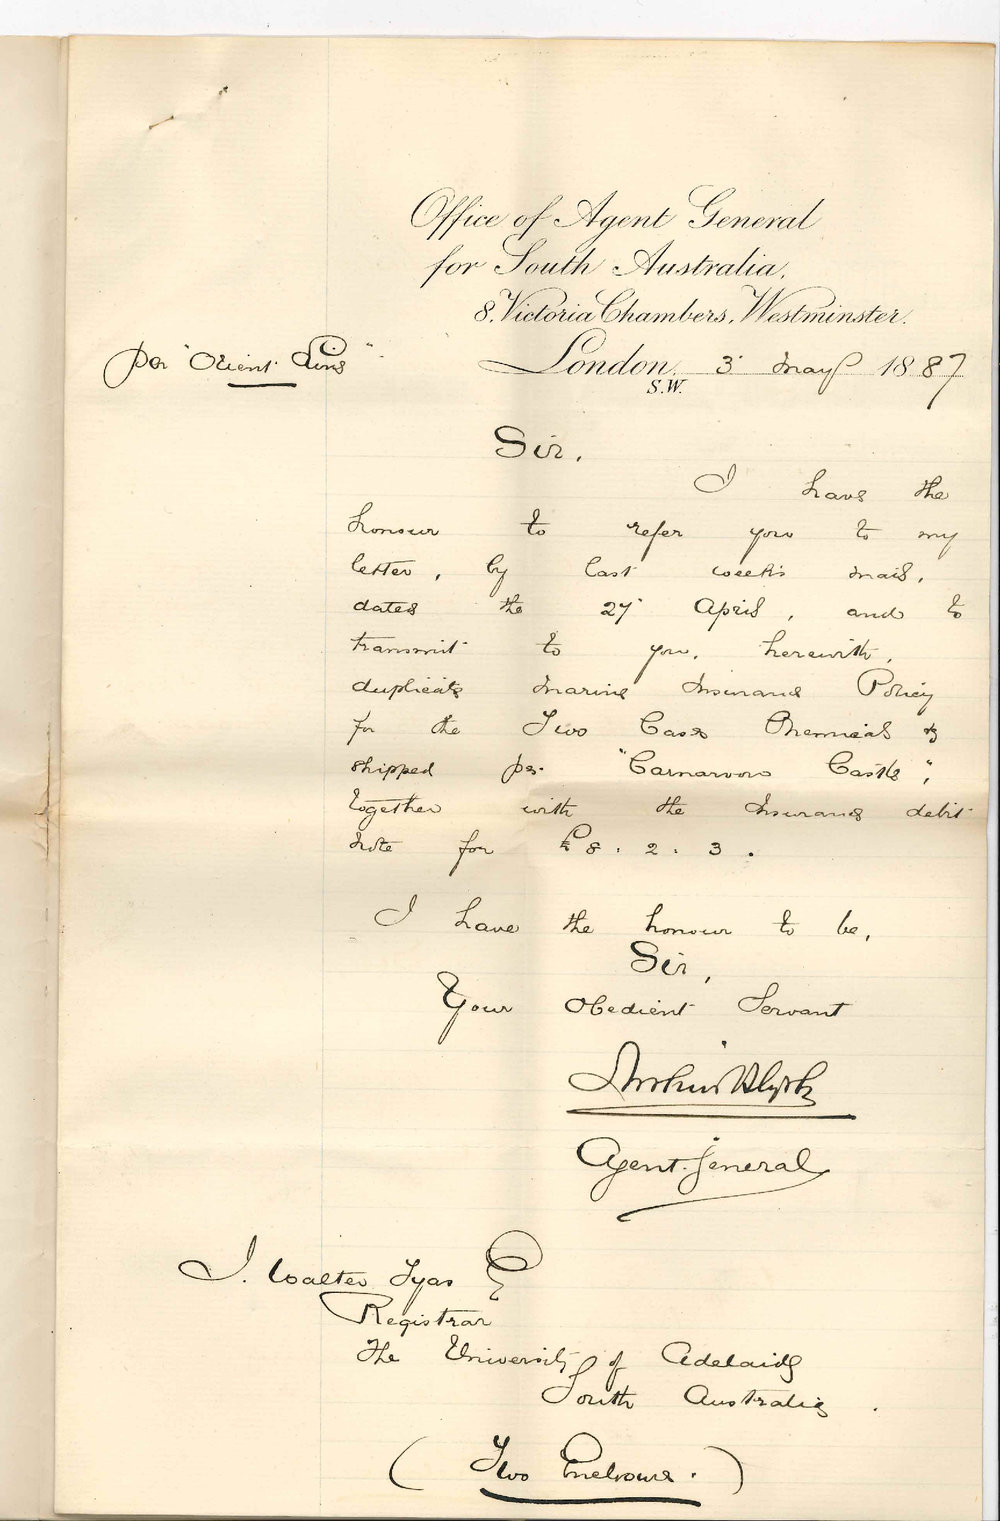 Office of Agent General
for South Australia.
8, Victoria Chambers, Westminster.
per "Orient Line"
London, 3 May 1887
S.W.
Sir,
I have the
honour to refer you to my
letter, by last week's mail,
dated the 27 April, and to
transmit to you, herewith,
duplicate Marine Insurance Policy
for the Two Cases Chemicals &c
shipped per "Carnarvon Castle",
together with the Insurance debit
note for £8.2.3.
I have the honour to be,
Sir,
Your Obedient Servant
Arthur Blyth
Agent General
J. Walter Tyas Esq
Registrar
The University of Adelaide
South Australia.
(Two Enclosures.)